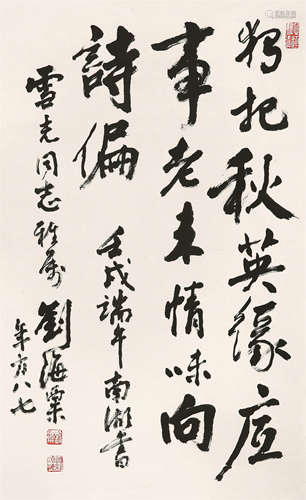 独把秋英缘底
事老来情味向
詩偏
雪克同志雅属
壬戌端午南湖書
劉海粟
年方八七